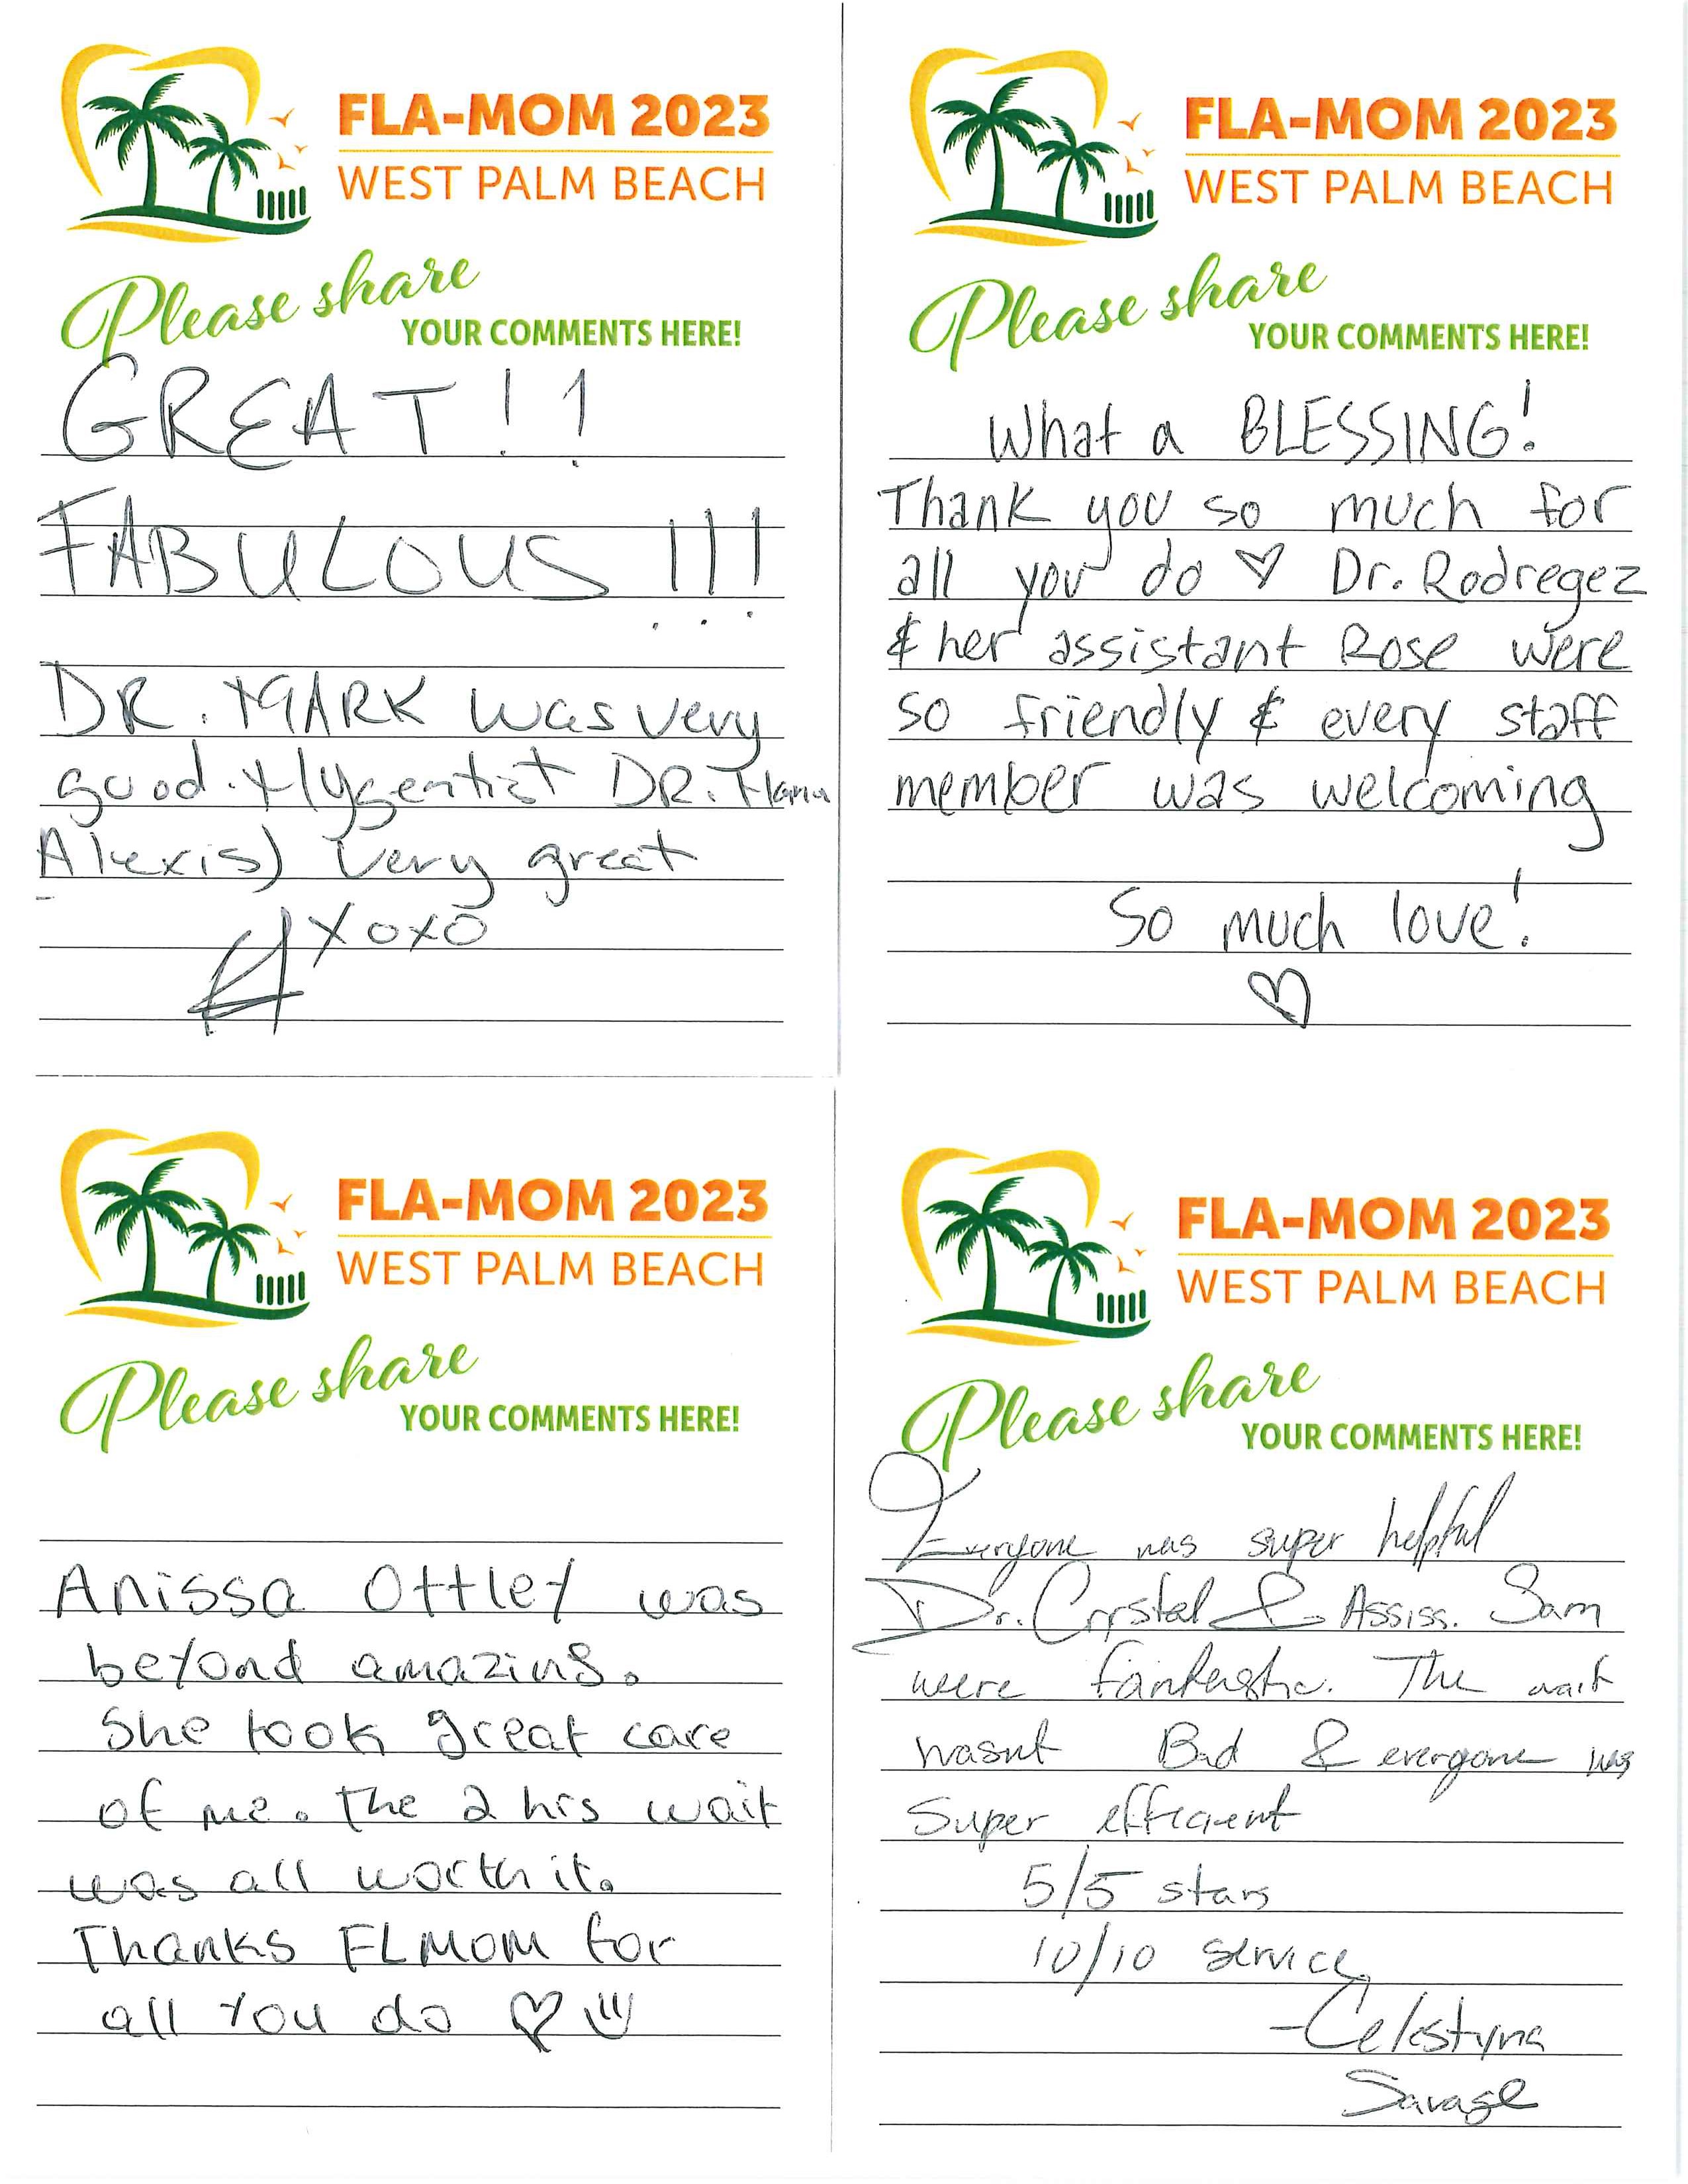 FLA-MOM 2023
WEST PALM BEACH
Please share
YOUR COMMENTS HERE!
GREAT!!
FABULOUS!!!
DR. MARK was very
good. Hygentist DR.
Alexis) very great
XOXO
FLA-MOM 2023
WEST PALM BEACH
Please share
YOUR COMMENTS HERE!
What a BLESSING!
Thank you so much for
all you do ♡ Dr. Rodregez
& her assistant Rose were
so friendly & every staff
member was welcoming
So much love!
♡
FLA-MOM 2023
WEST PALM BEACH
Please share
YOUR COMMENTS HERE!
Anissa Ottley was
beyond amazing.
She took great care
of me. The 2 hrs wait
was all worth it.
Thanks FLMOM for
all you do ♡
FLA-MOM 2023
WEST PALM BEACH
Please share
YOUR COMMENTS HERE!
Everyone was super helpful
Dr. Crystal & Assiss. Sam
were fantastic. The wait
wasnt Bad & everyone was
Super efficient
5/5 stars
10/10 service
-Celestyna
Savage